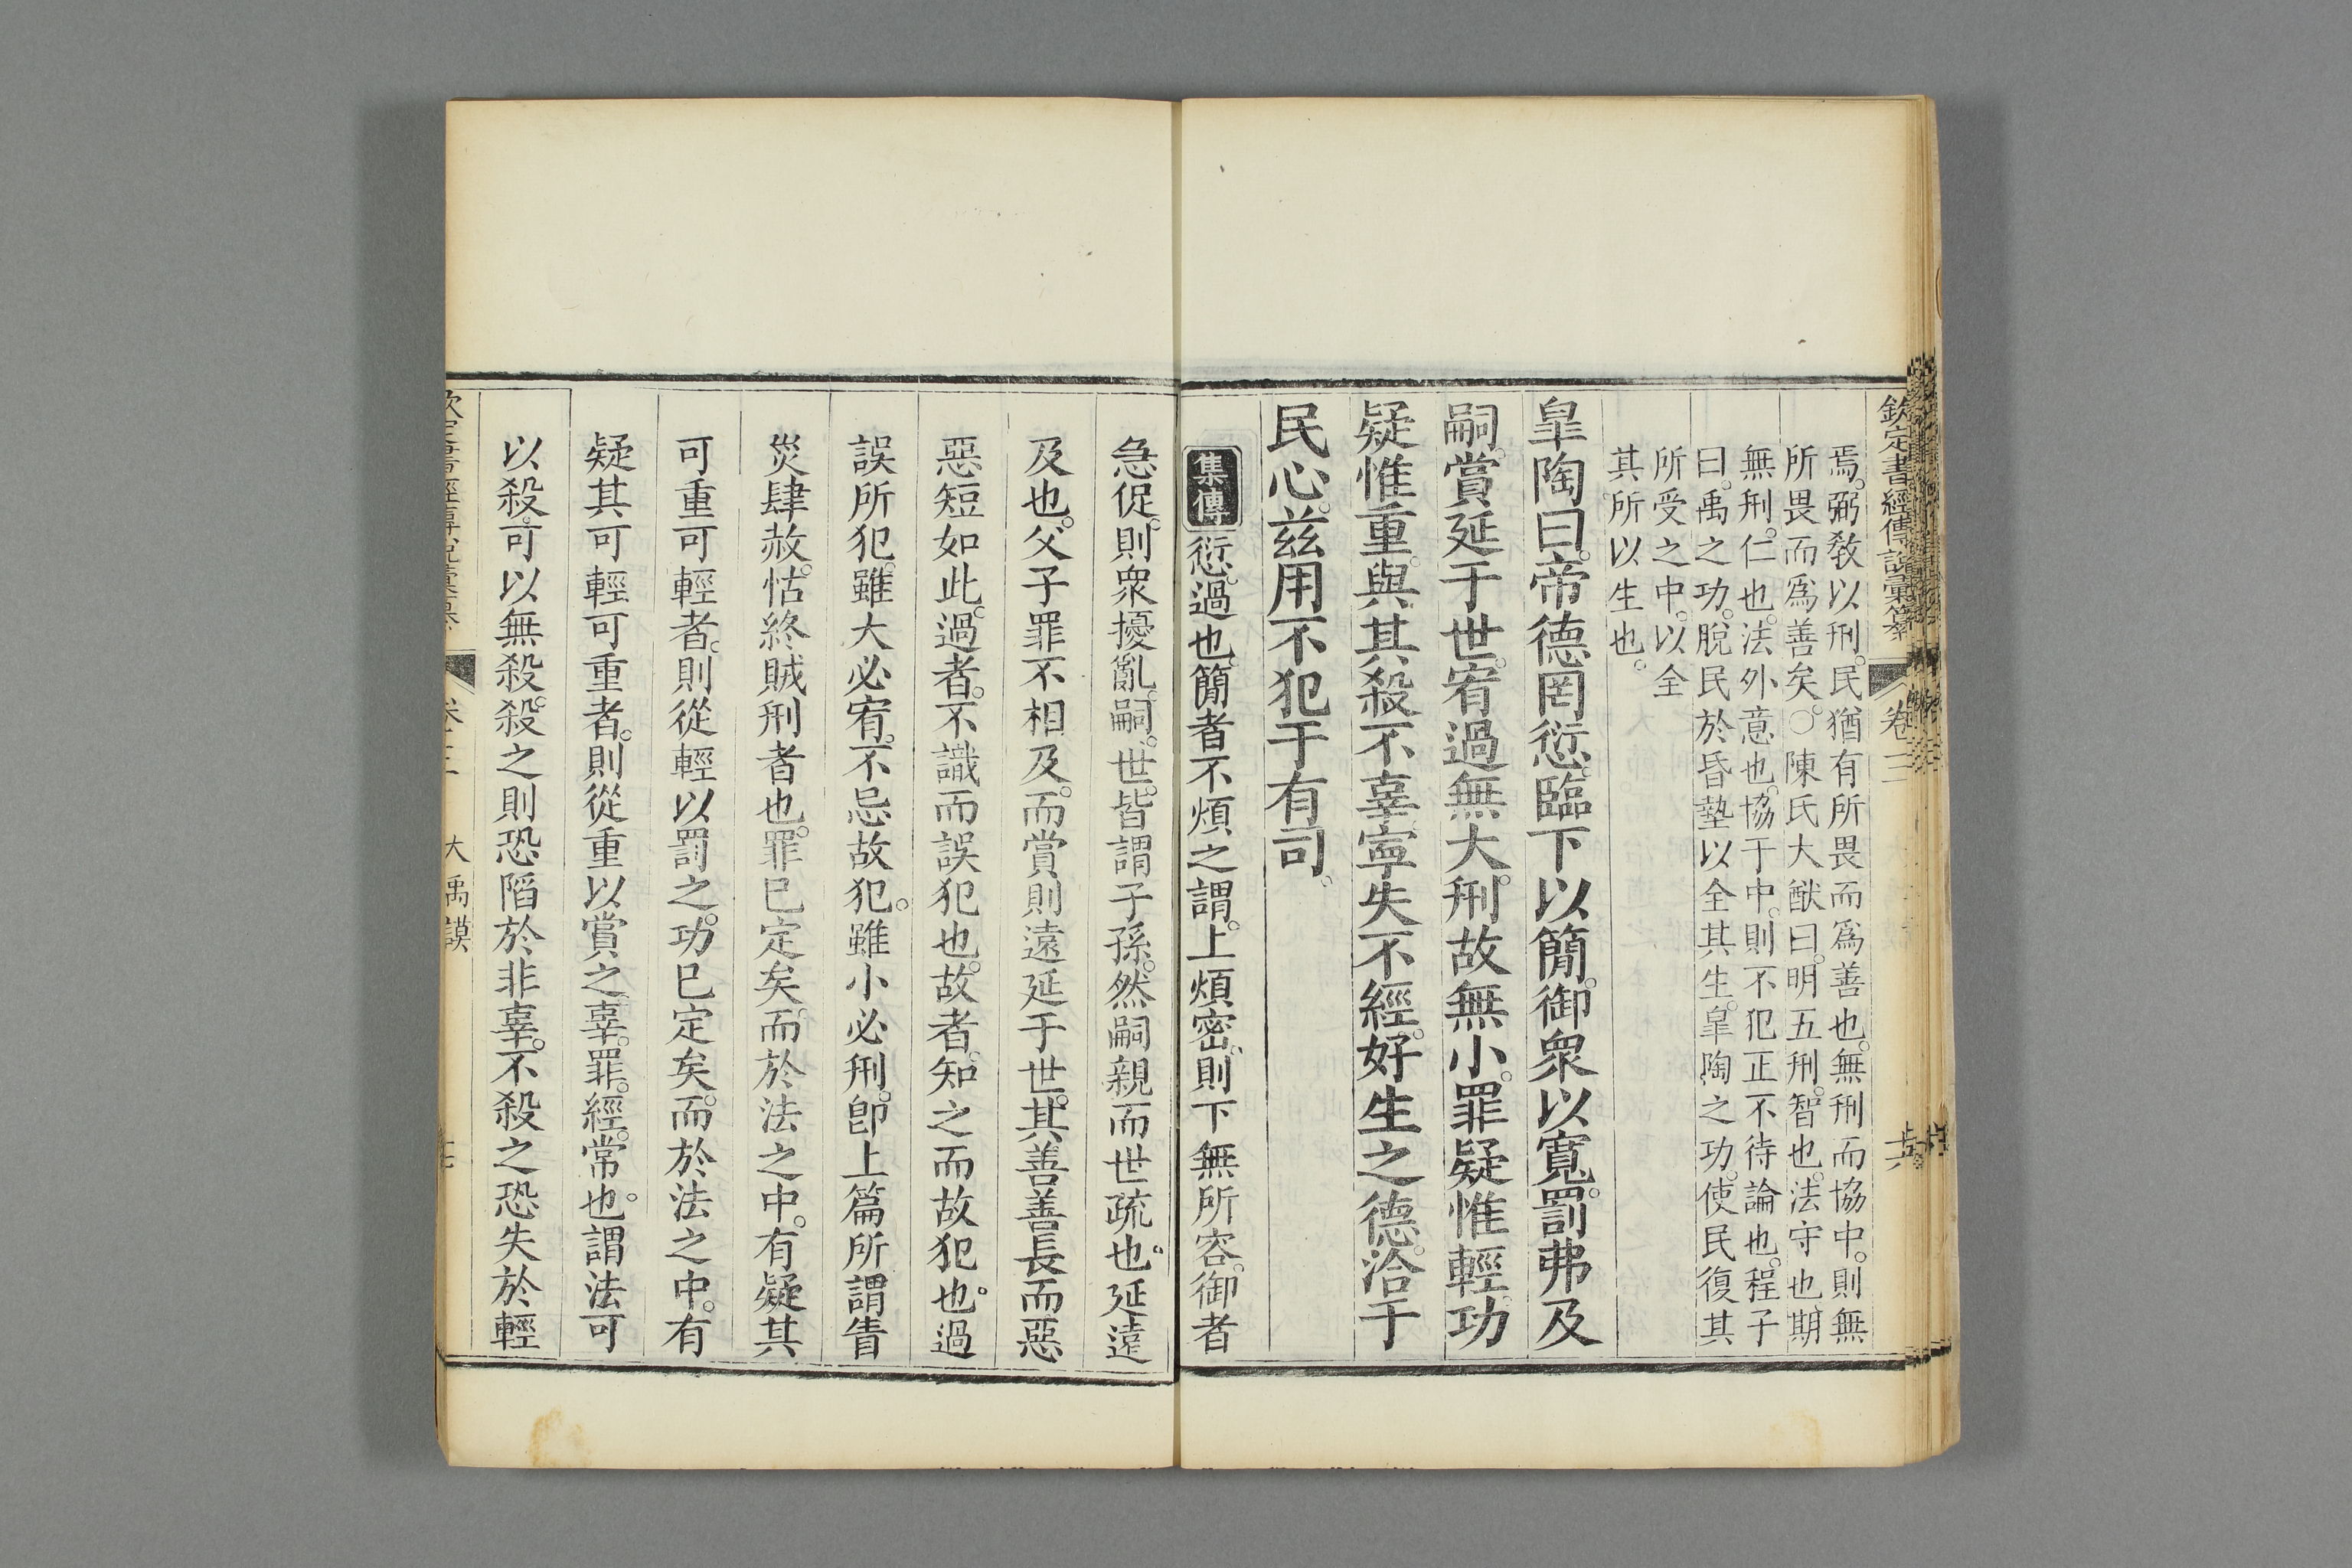 欽定書經傳說彙纂 卷三
焉。弼敎以刑。民猶有所畏而爲善也。無刑而協中。則無
所畏而爲善矣。○陳氏大猷曰。明五刑。智也。法守也。期
無刑。仁也。法外意也。協于中。則不犯正不待論也。程子
曰。禹之功。脫民於昏墊以全其生。臯陶之功。使民復其
所受之中。以全
其所以生也。
臯陶曰。帝德罔愆。臨下以簡。御衆以寬。罰弗及
嗣。賞延于世。宥過無大。刑故無小。罪疑惟輕。功
疑惟重。與其殺不辜。寧失不經。好生之德。洽于
民心。兹用不犯于有司。
集傳 愆。過也。簡者不煩之謂。上煩密。則下無所容。御者
急促。則衆擾亂。嗣。世。皆謂子孫。然嗣親而世疏也。延。遠
及也。父子罪不相及。而賞則遠延于世。其善善長而惡
惡短如此。過者。不識而誤犯也。故者。知之而故犯也。過
誤所犯。雖大必宥。不忌故犯。雖小必刑。卽上篇所謂眚
災肆赦。怙終賊刑者也。罪已定矣。而於法之中。有疑其
可重可輕者。則從輕以罰之。功已定矣。而於法之中。有
疑其可輕可重者。則從重以賞之。辜。罪。經。常也。謂法可
以殺。可以無殺。殺之則恐陷於非辜。不殺之恐失於輕
卷三 大禹謨